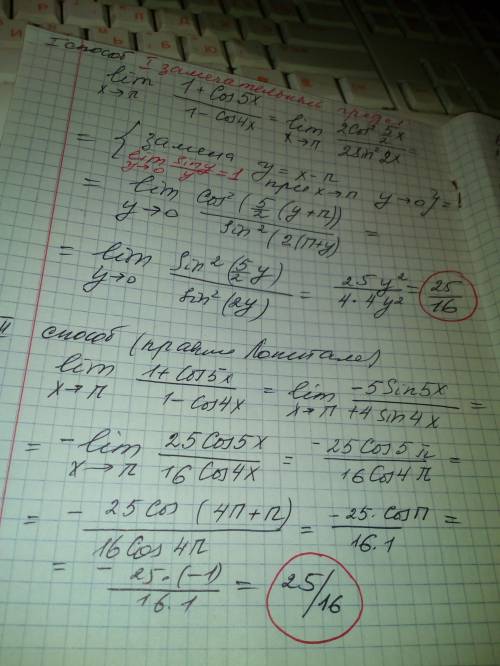 I способ I замечательный предел
lim x→π (1+cos5x)/(1-cos4x) = lim x→π (2cos² 5/2 x)/(2sin² 2x) =
= { замена y = x-π при x→π y→0 } =
lim y→0 sin y / y = 1
= lim y→0 (cos² (5/2 (y+π)))/(sin² (2(π+y)) =
= lim y→0 (sin² (5/2 y))/(sin² (2y)) = (25y²)/(4·4y²) = 25/16
II способ (правило Лопиталя)
lim x→π (1+cos5x)/(1-cos4x) = lim x→π (-5sin5x)/(+4sin4x) =
= - lim x→π (25cos5x)/(16cos4x) = (-25cos5π)/(16cos4π) =
= - (25cos (4π+π))/(16cos4π) = (-25·cosπ)/(16·1) =
= - (25·(-1))/(16·1) = 25/16